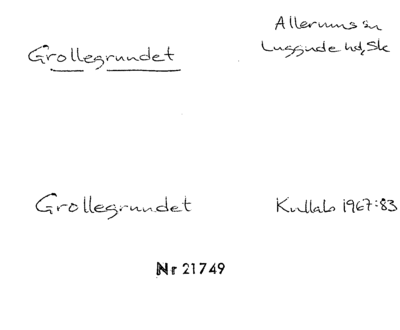 Grollegrundet
Allerums sn
Luggude hd, Sk
Grollegrundet
Kullabo 1967:83
Nr 21749